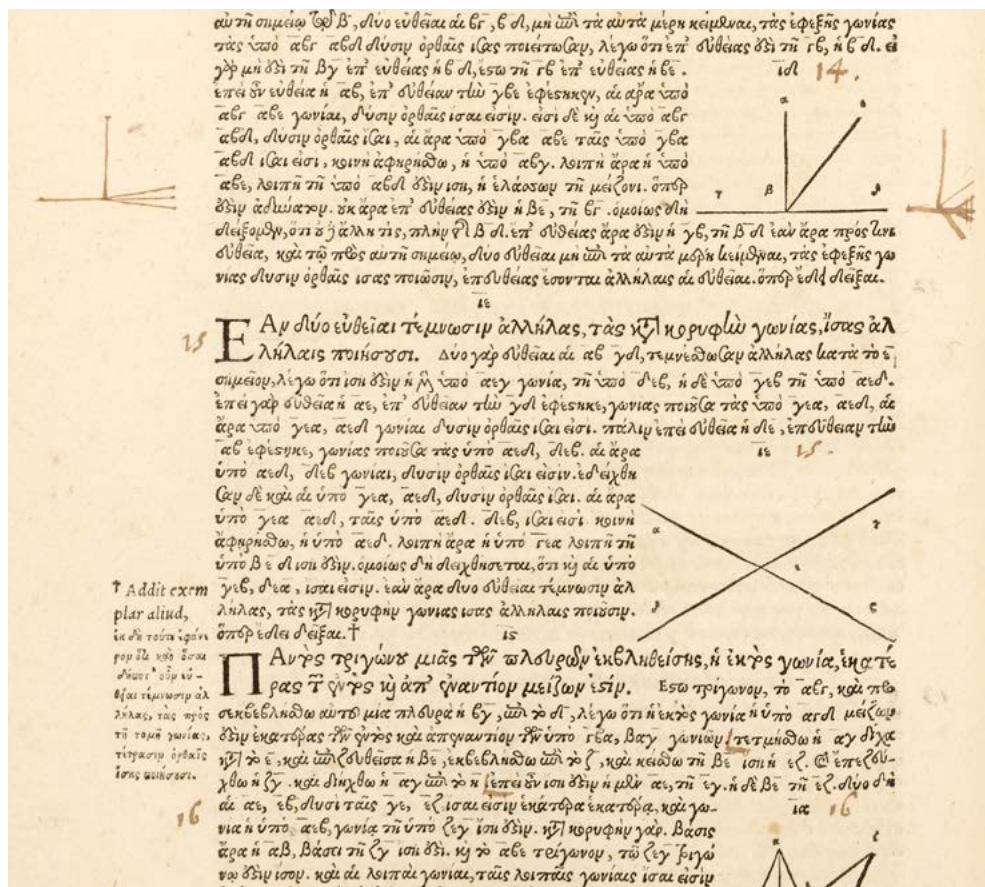 αὐτῇ σημείῳ τῷ β, δύο εὐθεῖαι αἱ βγ, βδ, μὴ ἐπὶ τὰ αὐτὰ μέρη κείμεναι, τὰς ἐφεξῆς γωνίας
τὰς ὑπὸ αβγ αβδ δύσιν ὀρθαῖς ἴσας ποιείτωσαν, λέγω ὅτι ἐπ' εὐθείας ἐστὶ τῇ γβ, ἡ βδ. εἰ
γὰρ μή ἐστι τῇ βγ ἐπ' εὐθείας ἡ βδ, ἔστω τῇ γβ ἐπ' εὐθείας ἡ βε.
ιδ 14.
ἐπεὶ οὖν εὐθεῖα ἡ αβ, ἐπ' εὐθεῖαν τὴν γβε ἐφέστηκεν, αἱ ἄρα ὑπὸ
αβγ αβε γωνίαι, δύσιν ὀρθαῖς ἴσαι εἰσίν. εἰσὶ δὲ καὶ αἱ ὑπὸ αβγ
αβδ, δυσὶν ὀρθαῖς ἴσαι, αἱ ἄρα ὑπὸ γβα αβε ταῖς ὑπὸ γβα
αβδ ἴσαι εἰσι, κοινὴ ἀφῃρήσθω, ἡ ὑπὸ αβγ. λοιπὴ ἄρα ἡ ὑπὸ
αβε, λοιπῇ τῇ ὑπὸ αβδ ἐστὶν ἴση, ἡ ἐλάσσων τῇ μείζονι. ὅπερ
ἐστὶν ἀδύνατον. οὐκ ἄρα ἐπ' εὐθείας ἐστὶν ἡ βε, τῇ βγ. ὁμοίως δὴ
δείξομεν, ὅτι οὐδ' ἄλλη τις, πλὴν τῆς βδ. ἐπ' εὐθείας ἄρα ἐστὶν ἡ γβ, τῇ βδ ἐὰν ἄρα πρός τινι
εὐθείᾳ, καὶ τῷ πρὸς αὐτῇ σημείῳ, δύο εὐθεῖαι μὴ ἐπὶ τὰ αὐτὰ μέρη κείμεναι, τὰς ἐφεξῆς γω
νίας δυσὶν ὀρθαῖς ἴσας ποιῶσιν, ἐπ' εὐθείας ἔσονται ἀλλήλαις αἱ εὐθεῖαι. ὅπερ ἔδει δεῖξαι.
α ε
γ β δ
ιε
15
ΕΑν δύο εὐθεῖαι τέμνωσιν ἀλλήλας, τὰς κατὰ κορυφὴν γωνίας, ἴσας ἀλ
λήλαις ποιήσουσι. Δύο γὰρ εὐθεῖαι αἱ αβ γδ, τεμνέσθωσαν ἀλλήλας κατὰ τὸ ε
σημεῖον, λέγω ὅτι ἴση ἐστὶν ἡ μὲν ὑπὸ αεγ γωνία, τῇ ὑπὸ δεβ, ἡ δὲ ὑπὸ γεβ τῇ ὑπὸ αεδ.
ἐπεὶ γὰρ εὐθεῖα ἡ αε, ἐπ' εὐθεῖαν τὴν γδ ἐφέστηκε, γωνίας ποιοῦσα τὰς ὑπὸ γεα, αεδ, αἱ
ἄρα ὑπὸ γεα, αεδ γωνίαι δυσὶν ὀρθαῖς ἴσαι εἰσι. πάλιν ἐπεὶ εὐθεῖα ἡ δε, ἐπ' εὐθεῖαν τὴν
αβ ἐφέστηκε, γωνίας ποιοῦσα τὰς ὑπὸ αεδ, δεβ. αἱ ἄρα
ιε 15.
ὑπὸ αεδ, δεβ γωνίαι, δυσὶν ὀρθαῖς ἴσαι εἰσίν. ἐδείχθη
σαν δὲ καὶ αἱ ὑπὸ γεα, αεδ, δυσὶν ὀρθαῖς ἴσαι. αἱ ἄρα
ὑπὸ γεα αεδ, ταῖς ὑπὸ αεδ. δεβ, ἴσαι εἰσὶ κοινὴ
ἀφῃρήσθω, ἡ ὑπὸ αεδ. λοιπὴ ἄρα ἡ ὑπὸ γεα λοιπῇ τῇ
ὑπὸ βεδ ἴση ἐστίν. ὁμοίως δὴ δειχθήσεται, ὅτι καὶ αἱ ὑπὸ
γεβ, δεα, ἴσαι εἰσιν. ἐὰν ἄρα δύο εὐθεῖαι τέμνωσιν ἀλ
λήλας, τὰς κατὰ κορυφὴν γωνίας ἴσας ἀλλήλαις ποιοῦσιν.
ὅπερ ἔδει δεῖξαι. †
α γ
ε
δ ς
† Addit exem
plar aliud,
ἐκ δὴ τούτου φανε
ρὸν ὅτι καὶ ὅσαι
δήποτ' οὖν εὐ-
θεῖαι τέμνωσιν ἀλ
λήλας, τὰς πρὸς
τῇ τομῇ γωνίας,
τέτρασιν ὀρθαῖς
ἴσας ποιήσουσι.
ις
16
ΠΑντὸς τριγώνου μιᾶς τῶν πλευρῶν ἐκβληθείσης, ἡ ἐκτὸς γωνία, ἑκατέ
ρας τῶν ἐντὸς καὶ ἀπ' ἐναντίον μείζων ἐστίν. Ἔστω τρίγωνον, τὸ αβγ, καὶ προ
σεκβεβλήσθω αὐτοῦ μία πλευρὰ ἡ βγ, ἐπὶ τὸ δ, λέγω ὅτι ἡ ἐκτὸς γωνία ἡ ὑπὸ αγδ μείζων
ἐστὶν ἑκατέρας τῶν ἐντὸς καὶ ἀπεναντίον τῶν ὑπὸ γβα, βαγ γωνιῶν. τετμήσθω ἡ αγ δίχα
κατὰ τὸ ε, καὶ ἐπιζευχθεῖσα ἡ βε, ἐκβεβλήσθω ἐπὶ τὸ ζ, καὶ κείσθω τῇ βε ἴση ἡ εζ. Καὶ ἐπεζεύ-
χθω ἡ ζγ. καὶ διήχθω ἡ αγ ἐπὶ τὸ η ἐπεὶ οὖν ἴση ἐστὶν ἡ μὲν αε, τῇ εγ. ἡ δὲ βε τῇ εζ. δύο δὴ
αἱ αε, εβ, δυσὶ ταῖς γε, εζ ἴσαι εἰσὶν ἑκατέρα ἑκατέρᾳ, καὶ γω-
ια 16
νία ἡ ὑπὸ αεβ, γωνίᾳ τῇ ὑπὸ ζεγ ἴση ἐστίν. κατὰ κορυφὴν γάρ. βάσις
ἄρα ἡ αβ, βάσει τῇ ζγ ἴση ἐστί. καὶ τὸ αβε τρίγωνον, τῷ ζεγ τριγώ
νῳ ἐστὶν ἴσον. καὶ αἱ λοιπαὶ γωνίαι, ταῖς λοιπαῖς γωνίαις ἴσαι εἰσὶν
α ζ